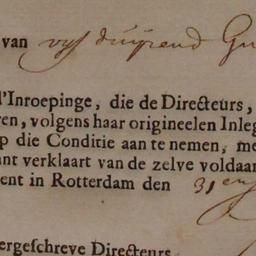 van vyf duysend Gu
d'Inroepinge, die de Directeurs,
ren, volgens haar origineelen Inleg
p die Conditie aan te nemen, me
ant verklaart van de zelve voldaan
ent in Rotterdam den 31en
ergeſchreve Directeurs